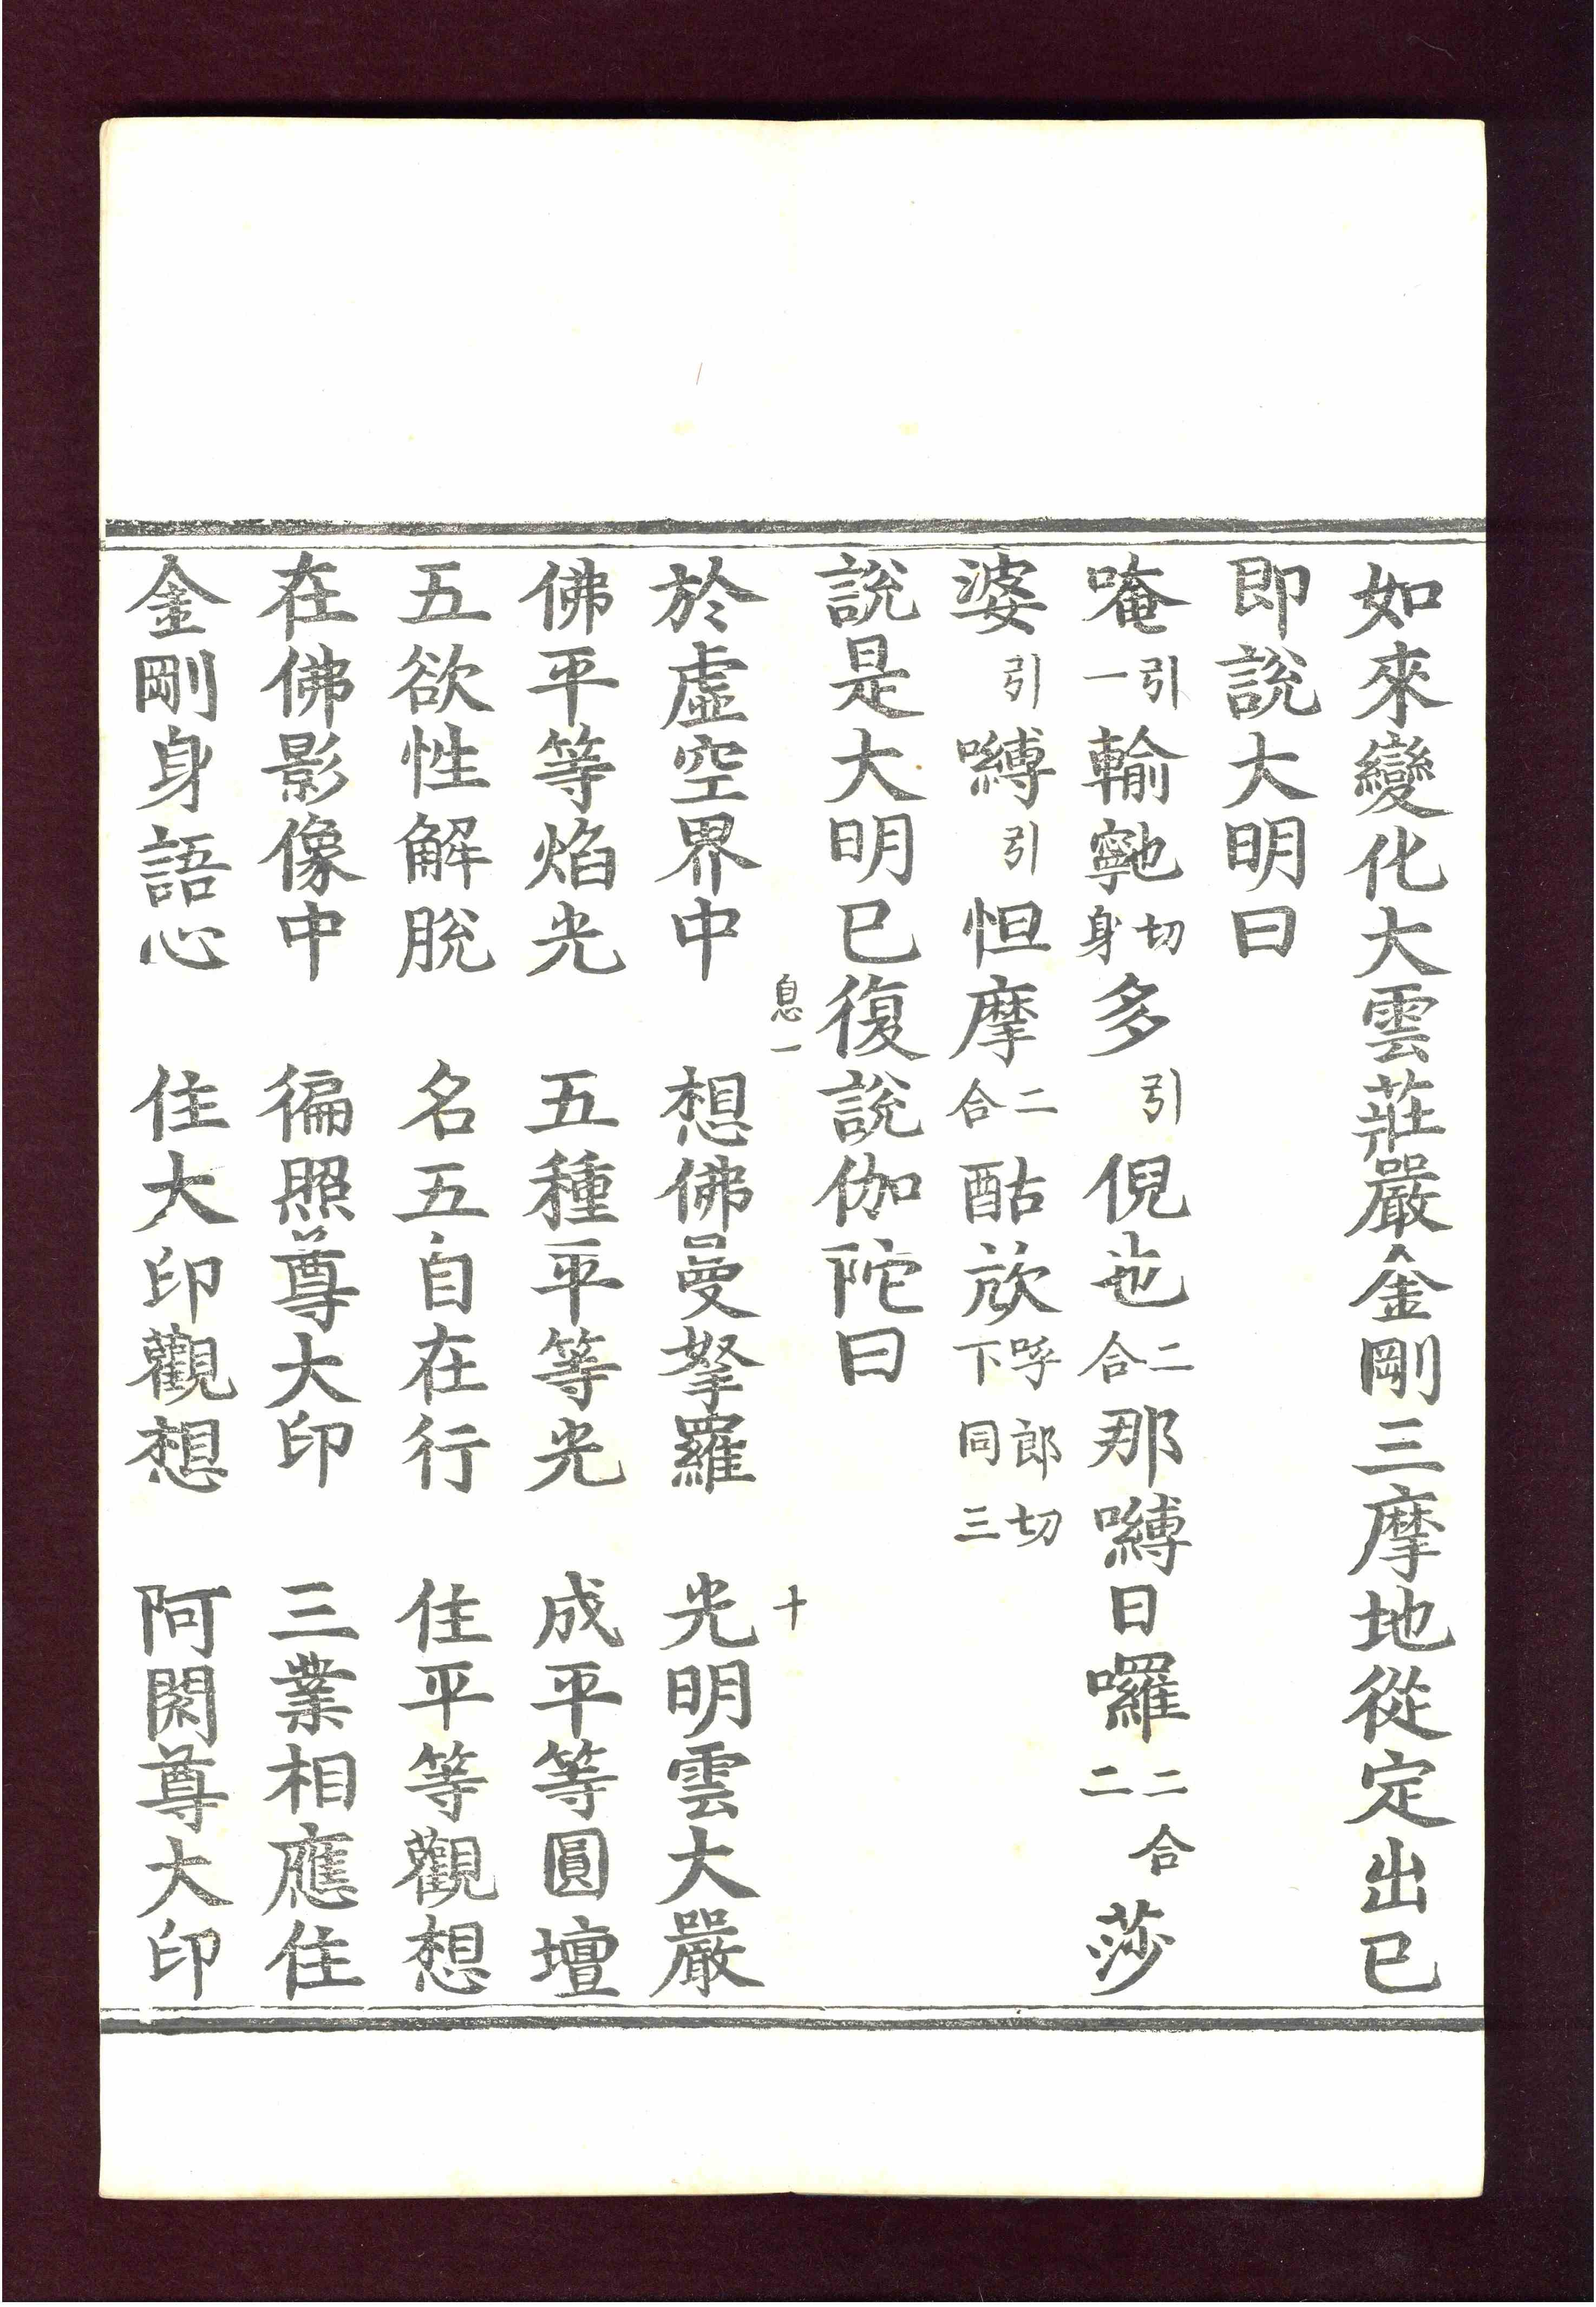 如來變化大雲莊嚴金剛三摩地從定出已
即說大明曰
唵引一輸𩕳切身多引倪也二合那嚩日囉二合二莎
婆引嚩引怛摩二合酤㰠呼郎切下同三
說是大明已復說伽陀曰
息一　十
於虛空界中　想佛曼拏羅　光明雲大嚴
佛平等焰光　五種平等光　成平等圓壇
五欲性解脫　名五自在行　住平等觀想
在佛影像中　徧照尊大印　三業相應住
金剛身語心　住大印觀想　阿閦尊大印